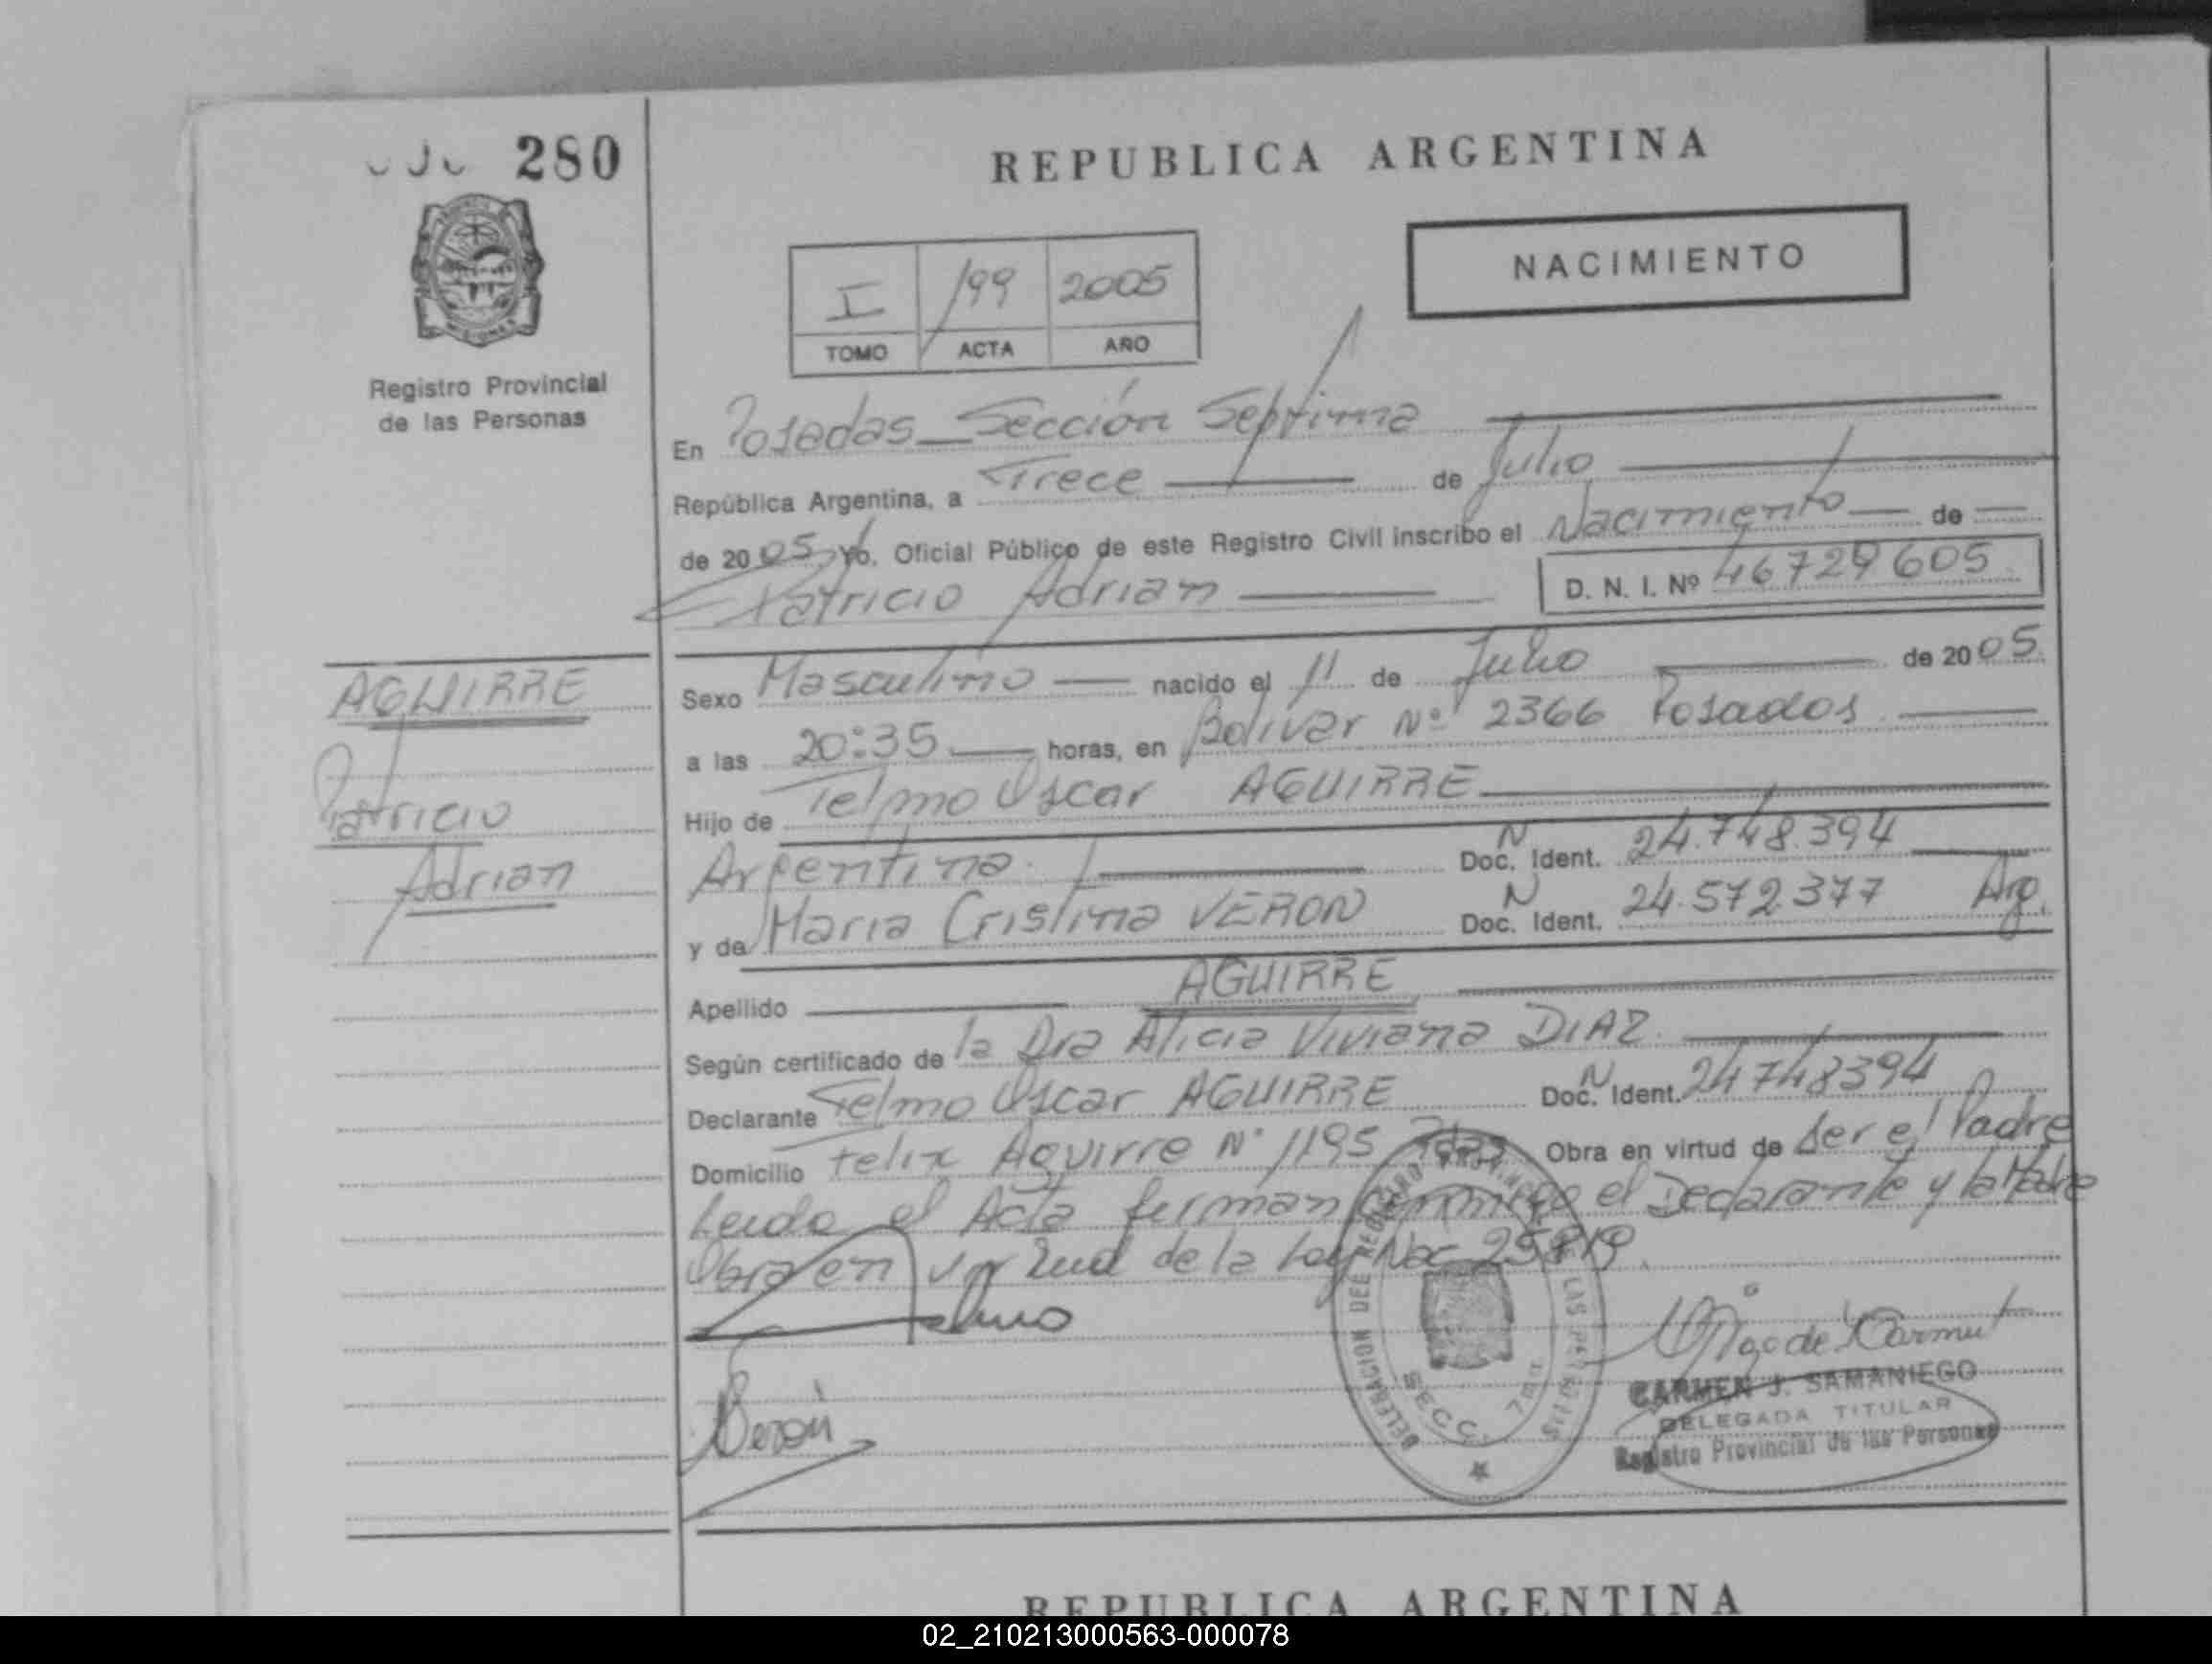 280
REPUBLICA ARGENTINA
NACIMIENTO
I 199 2005
TOMO ACTA AÑO
Registro Provincial
de las Personas
En Posadas Sección Septima
República Argentina, a Trece de Julio
de 2005, Yo, Oficial Público de este Registro Civil inscribo el Nacimiento de
Patricio Adrian D. N. I. Nº 46729605
AGUIRRE
Patricio
Adrian
Sexo Masculino nacido el 11 de Julio de 2005
a las 20:35 horas, en Bolivar Nº 2366 Posadas
Hijo de Telmo Oscar AGUIRRE
Argentina. Doc. N Ident. 24.748.394
y de Maria Cristina VERON Doc. N Ident. 24.572.377 Arg.
Apellido AGUIRRE
Según certificado de la Dra Alicia Viviana DIAZ
Declarante Telmo Oscar AGUIRRE Doc. N Ident. 24748394
Domicilio Felix Aguirre Nº 1195 Pdas Obra en virtud de ser el Padre
Leida el Acta firman conmigo el Declarante y la Madre
Obra en virtud de la Ley Nac 25819.
Telmo
Veron
DELEGACION DEL REGISTRO PROVINCIAL DE LAS PERSONAS
SECC. 7ma
CARMEN J. SAMANIEGO
DELEGADA TITULAR
Registro Provincial de las Personas
REPUBLICA ARGENTINA
02_210213000563-000078